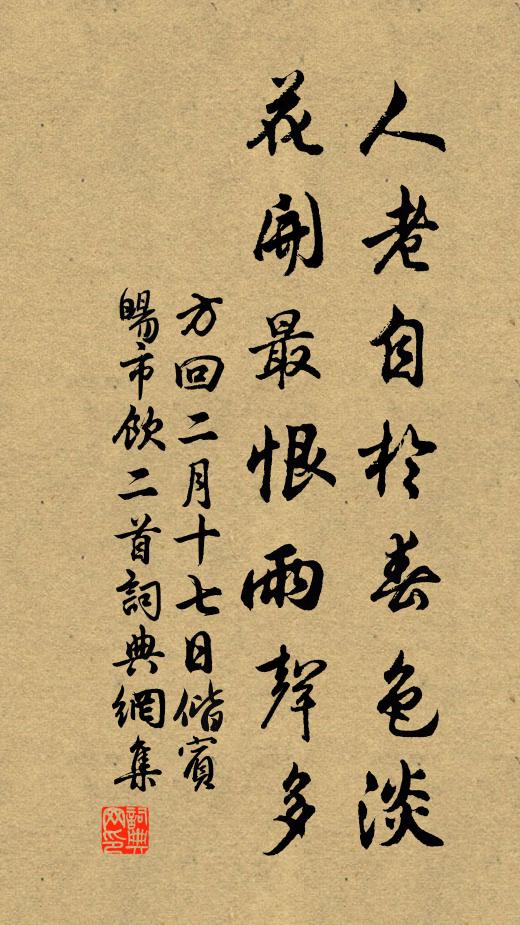 人老自於春色淡
花開最恨雨聲多
方回二月十七日偕賓
暘市飲二首詞典網集
詞典网印